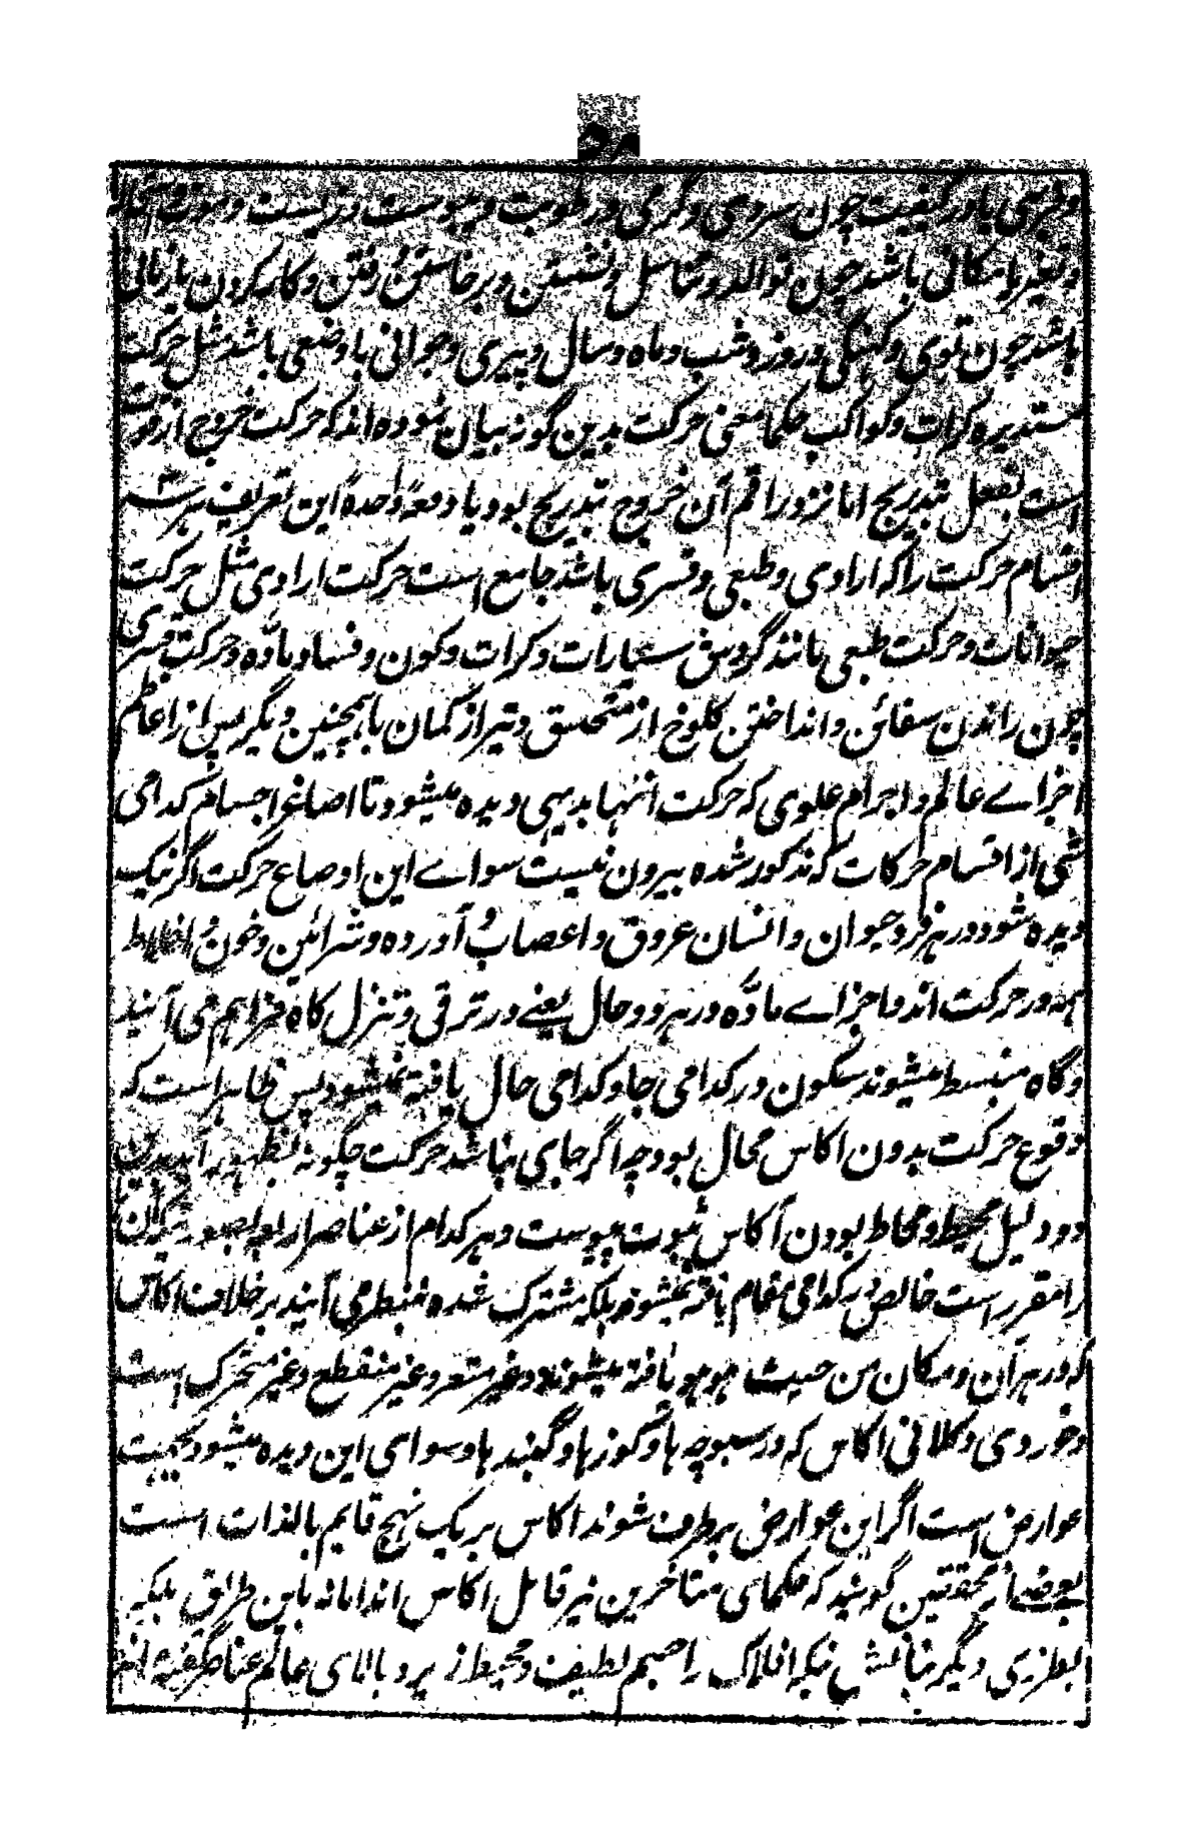 و طبعی یا در کیفیت چون سردی و گرمی و رطوبت و یبوست و زیست و موت و استحاله
و تغیر یا مکانی باشد چون توالد و تناسل و نشستن و برخاستن و رفتن و کار کردن یا زمانی
باشد چون نوی و کهنگی و روز و شب و ماه و سال و پیری و جوانی یا وضعی باشد مثل حرکت
مستدیره کرات و کواکب حکما معنی حرکت بدین گونه بیان نموده اند که حرکت خروج از قوت
است بفعل بتدریج اما نزد راقم آن خروج بتدریج بود یا دفعةً واحدةً این تعریف هر سه
اقسام حرکت را که ارادی و طبعی و قسری باشد جامع است حرکت ارادی مثل حرکت
حیوانات و حرکت طبعی مانند گردش سیارات و کرات و کون و فساد ماده و حرکت قسری
چون راندن سفائن و انداختن کلوخ از منجنیق و تیر از کمان یا همچنین دیگر پس از اعاظم
اجزاے عالم و اجرام علوی که حرکت آنها بدیهی دیده میشود تا اصاغر اجسام کدامی
شی از اقسام حرکات که مذکور شده بیرون نیست سواے این اوضاع حرکت اگر نیک
دیده شود در هر فرد حیوان و انسان عروق و اعصاب و آورده و شرائین و خون و اخلاط
همه در حرکت اند و اجزاے ماده در هر دو حال یعنے در ترقی و تنزل گاه فراهم می آیند
و گاه منبسط میشوند سکون در کدامی جا و کدامی حال یافته نمیشود پس ظاهر است که
وقوع حرکت بدون اکاس محال بود چه اگر جای نباشد حرکت چگونه بظهور آید بدین
دو دلیل محیط و محاط بودن آکاس ثبوت پیوست و هر کدام از عناصر اربعه بصورتیکه آن
را مقرر است خالص بر کدامی مقام یافته نمیشود بلکه مشترک شده بنظر می آیند بر خلاف اکاس
که در هر آن و مکان من حیث هو هو یافته میشود و غیر متعر و غیر منقطع و غیر متحرک است
و خوردی و کلانی اکاس که در سبوچه ها و کوزها و گنبدها و سوای این دیده میشود بجهت
عوارض است اگر این عوارض برطرف شوند اکاس بر یک نهج قایم بالذات است
بعضے محققین گویند که حکمای متاخرین نیز قائل اکاس اند اما نه باین طریق بلکه
بطرزی دیگر بیانش نیکه افلاک را جسم لطیف و محیط از بر و بالای عالم عناصر گفته اند